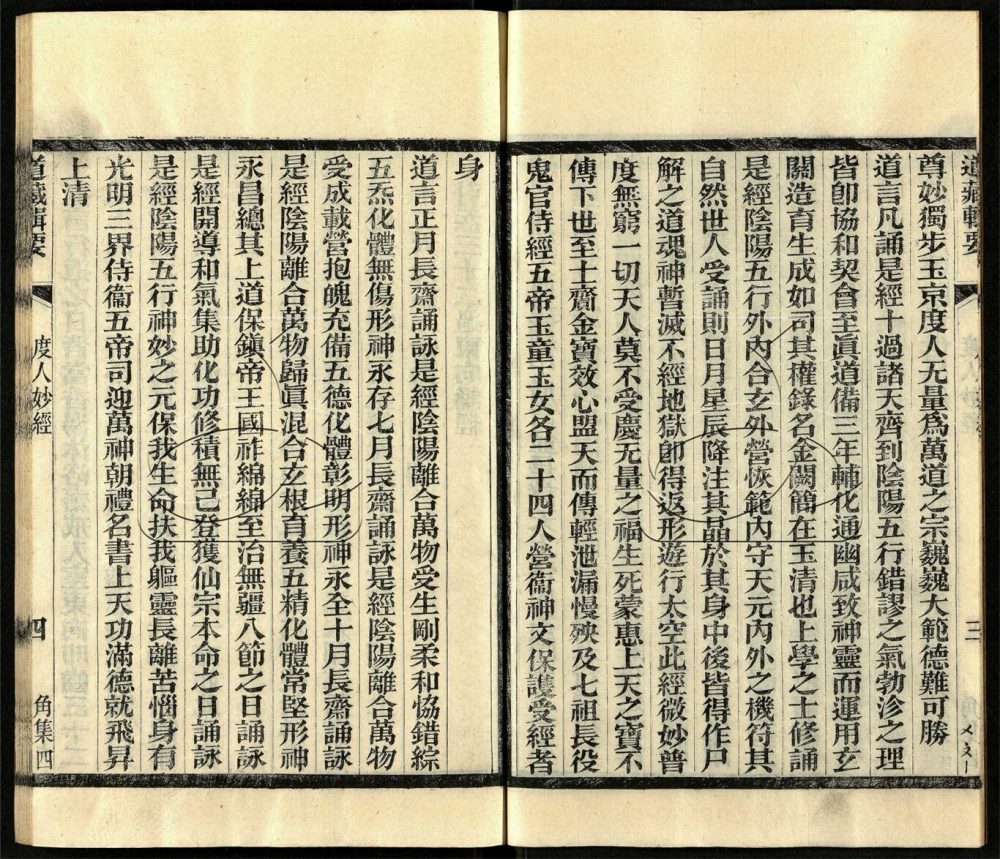 道藏輯要
三
尊妙獨步玉京度人无量爲萬道之宗巍巍大範德難可勝
道言凡誦是經十過諸天齊到陰陽五行錯謬之氣勃沴之理
皆卽協和契會至眞道備三年輔化通幽咸致神靈而運用玄
關造育生成如司其權錄名金闕簡在玉清也上學之士修誦
是經陰陽五行外內合玄外營恢範內守天元內外之機符其
自然世人受誦則日月星辰降注其晶於其身中後皆得作尸
解之道魂神暫滅不經地獄卽得返形遊行太空此經微妙普
度無窮一切天人莫不受慶无量之福生死蒙惠上天之寶不
傳下世至士齎金寶效心盟天而傳輕泄漏慢殃及七祖長役
鬼官侍經五帝玉童玉女各二十四人營衞神文保護受經者
身
道言正月長齋誦詠是經陰陽離合萬物受生剛柔和恊錯綜
五炁化體無傷形神永存七月長齋誦詠是經陰陽離合萬物
受成載營抱魄充備五德化體彰明形神永全十月長齋誦詠
是經陰陽離合萬物歸眞混合玄根育養五精化體常堅形神
永昌總其上道保鎮帝王國祚綿綿至治無疆八節之日誦詠
是經開導和氣集助化功修積無已登獲仙宗本命之日誦詠
是經陰陽五行神妙之元保我生命扶我軀靈長離苦惱身有
光明三界侍衞五帝司迎萬神朝禮名書上天功滿德就飛昇
上清
道藏輯要
度人妙經
四
角集四